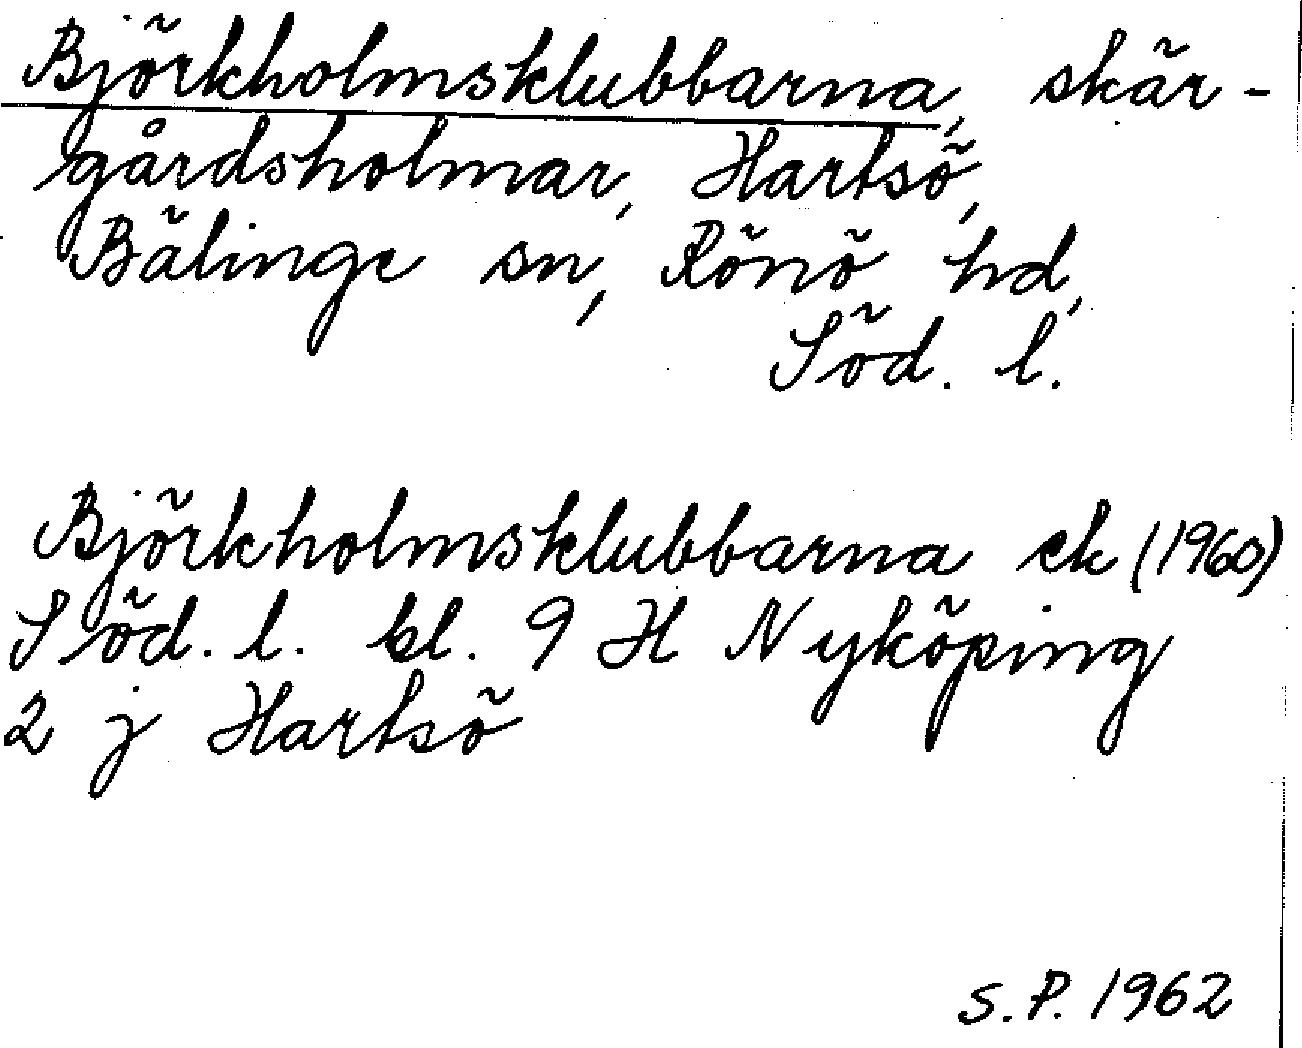 Björkholmsklubbarna, skär-
gårdsholmar, Hartsö,
Bälinge sn, Rönö hd,
Söd. l.
Björkholmsklubbarna ek (1960)
Söd. l. bl. 9 H Nyköping
2 j Hartsö
S.P. 1962